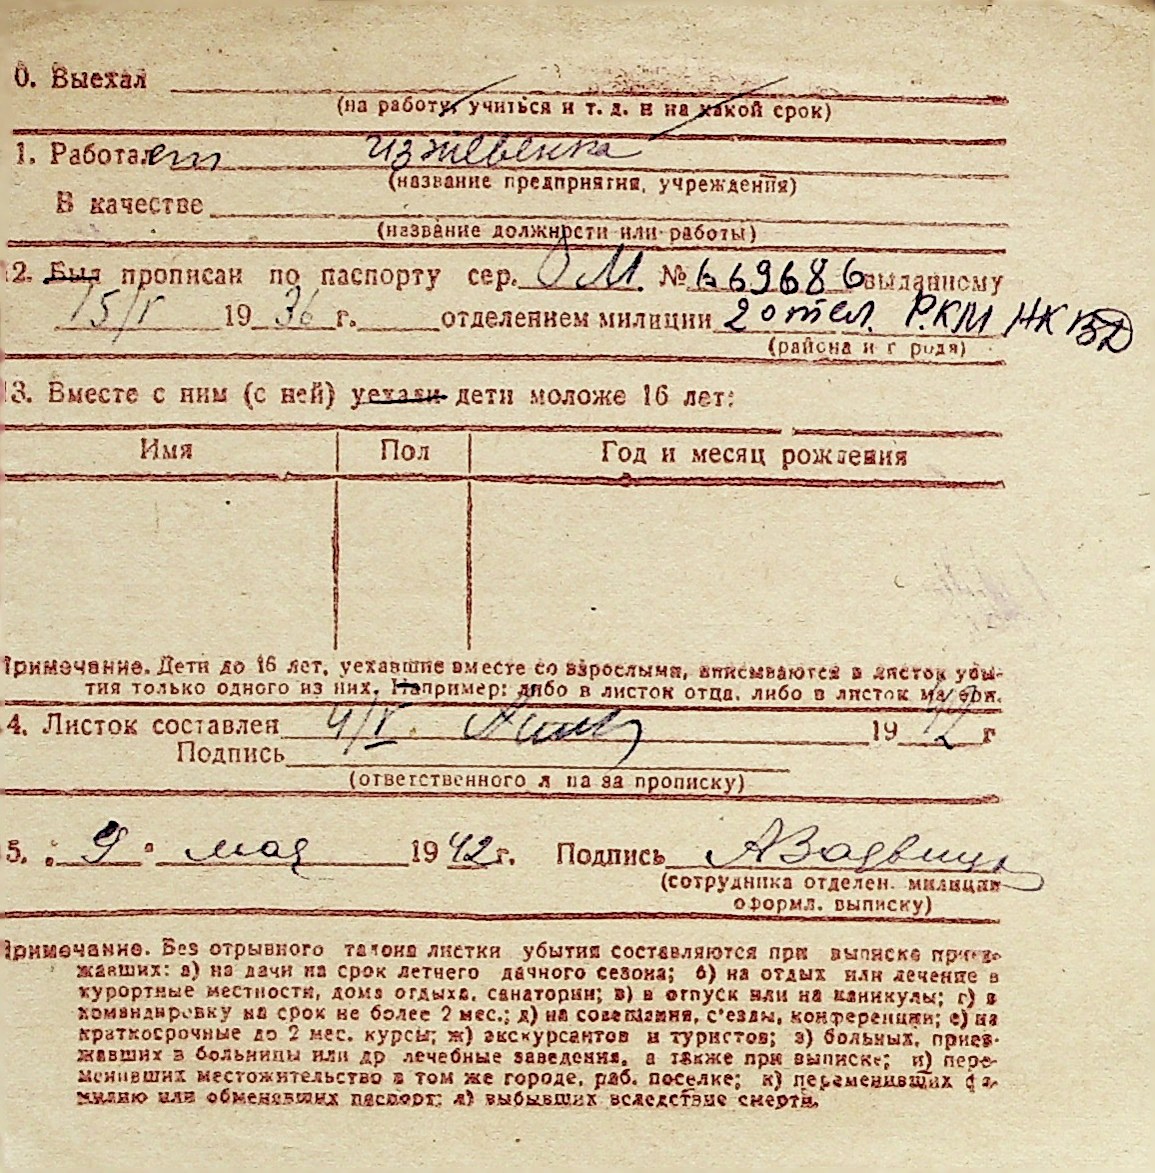 0. Выехал
(на работу, учиться и т. д. и на какой срок)
1. Работает иждивенка
(название предприятия, учреждения)
В качестве
(название должности или работы)
2. Был прописан по паспорту сер. ОМ № 669686 выданному
15/V 1936 г. отделением милиции 2 отел. РКМ НКВД
(района и г рода)
3. Вместе с ним (с ней) уехали дети моложе 16 лет:
Имя Пол Год и месяц рождения
Примечание. Дети до 16 лет, уехавшие вместе со взрослыми, вписываются в листок убы-
тия только одного из них. Например: либо в листок отца, либо в листок матери.
4. Листок составлен 4/V 1942 г
Подпись
(ответственного л ца за прописку)
5. 9 мая 1942 г. Подпись
(сотрудника отделен. милиции
оформл. выписку)
Примечание. Без отрывного талона листки убытия составляются при выписке приез-
жавших: а) на дачи на срок летнего дачного сезона; б) на отдых или лечение в
курортные местности, дома отдыха, санатории; в) в отпуск или на каникулы; г) в
командировку на срок не более 2 мес.; д) на совещания, с'езды, конференции; е) на
краткосрочные до 2 мес. курсы; ж) экскурсантов и туристов; з) больных, приез-
жавших в больницы или др лечебные заведения, а также при выписке; и) пере-
менивших местожительство в том же городе, раб. поселке; к) переменивших фа-
милию или обменявших паспорт; л) выбывших вследствие смерти.